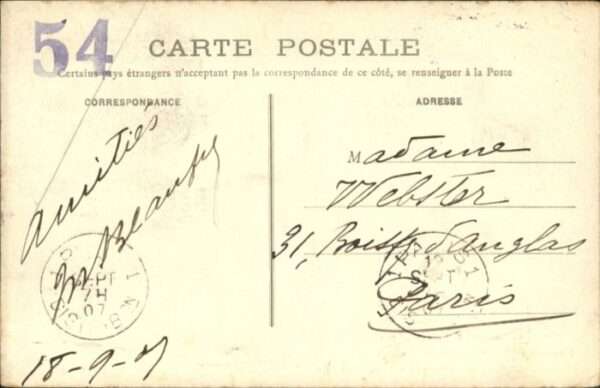 54
CARTE POSTALE
Certains pays étrangers n'acceptant pas la correspondance de ce côté, se renseigner à la Poste
CORRESPONDANCE
ADRESSE
Amitiés
18-9-07
Madame
Webster
31, Boissy d'anglas
Paris